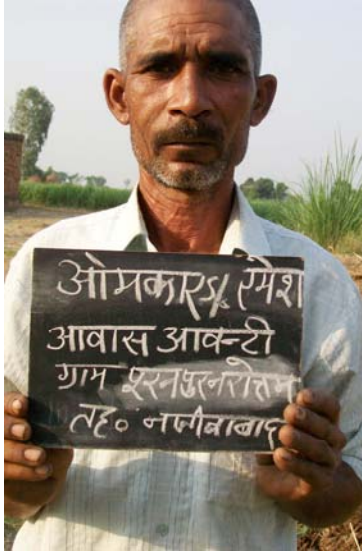 ओमकार S/ रमेश
आवास आवन्टी
ग्राम पूरनपुर नरोत्तम
तह० नजीबाबाद